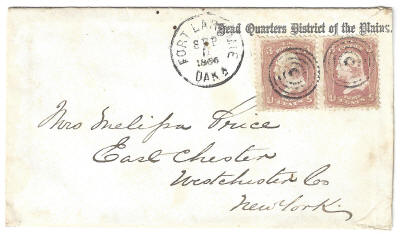 Head Quarters District of the Plains.
FORT LARAMIE
SEP
11
1866
DAKA
Mrs Melissa Price
East Chester
Westchester Co
New York.